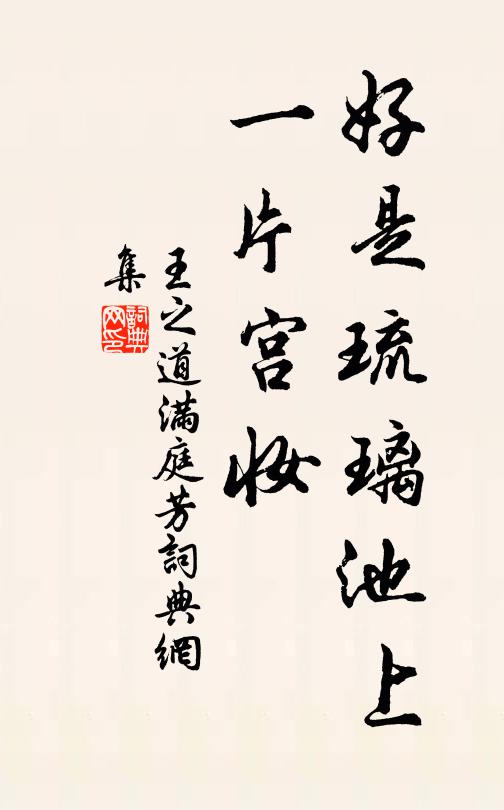 好是琉璃池上
一片宫妆
王之道滿庭芳詞典網
集
詞典
网印